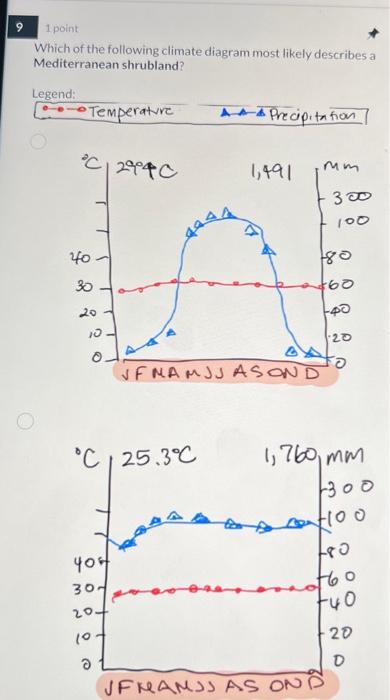 9 1 point
Which of the following climate diagram most likely describes a
Mediterranean shrubland?
Legend:
Temperature Precipitation
°C 29.4°C 1,491 mm
300
100
40 80
30 60
20 40
10 20
0 0
JFMAMJJASOND
°C 25.3°C 1,760 mm
300
100
40 80
30 60
20 40
10 20
0 0
JFMAMJJASOND